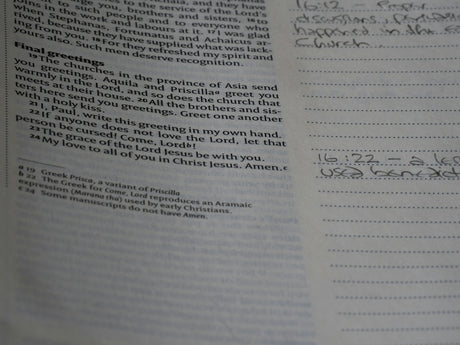 to the service of the Lord's
people and to everyone who
work and labours at it. 17 I was glad
Stephanas, Fortunatus and Achaicus ar-
rived, because they have supplied what was lack-
ing from you. 18 For they refreshed my spirit and
yours also. Such men deserve recognition.
Final greetings
19 The churches in the province of Asia send
you greetings. Aquila and Priscilla a greet you
warmly in the Lord, and so does the church that
meets at their house. 20 All the brothers and sis-
ters here send you greetings. Greet one another
with a holy kiss.
21 I, Paul, write this greeting in my own hand.
22 If anyone does not love the Lord, let that
person be cursed! Come, Lord b!
23 The grace of the Lord Jesus be with you.
24 My love to all of you in Christ Jesus. Amen. c
a 19 Greek Prisca, a variant of Priscilla
b 22 The Greek for Come, Lord reproduces an Aramaic
expression (Marana tha) used by early Christians.
c 24 Some manuscripts do not have Amen.
16:12 -
happened in the
Church.
16:22 - a
used